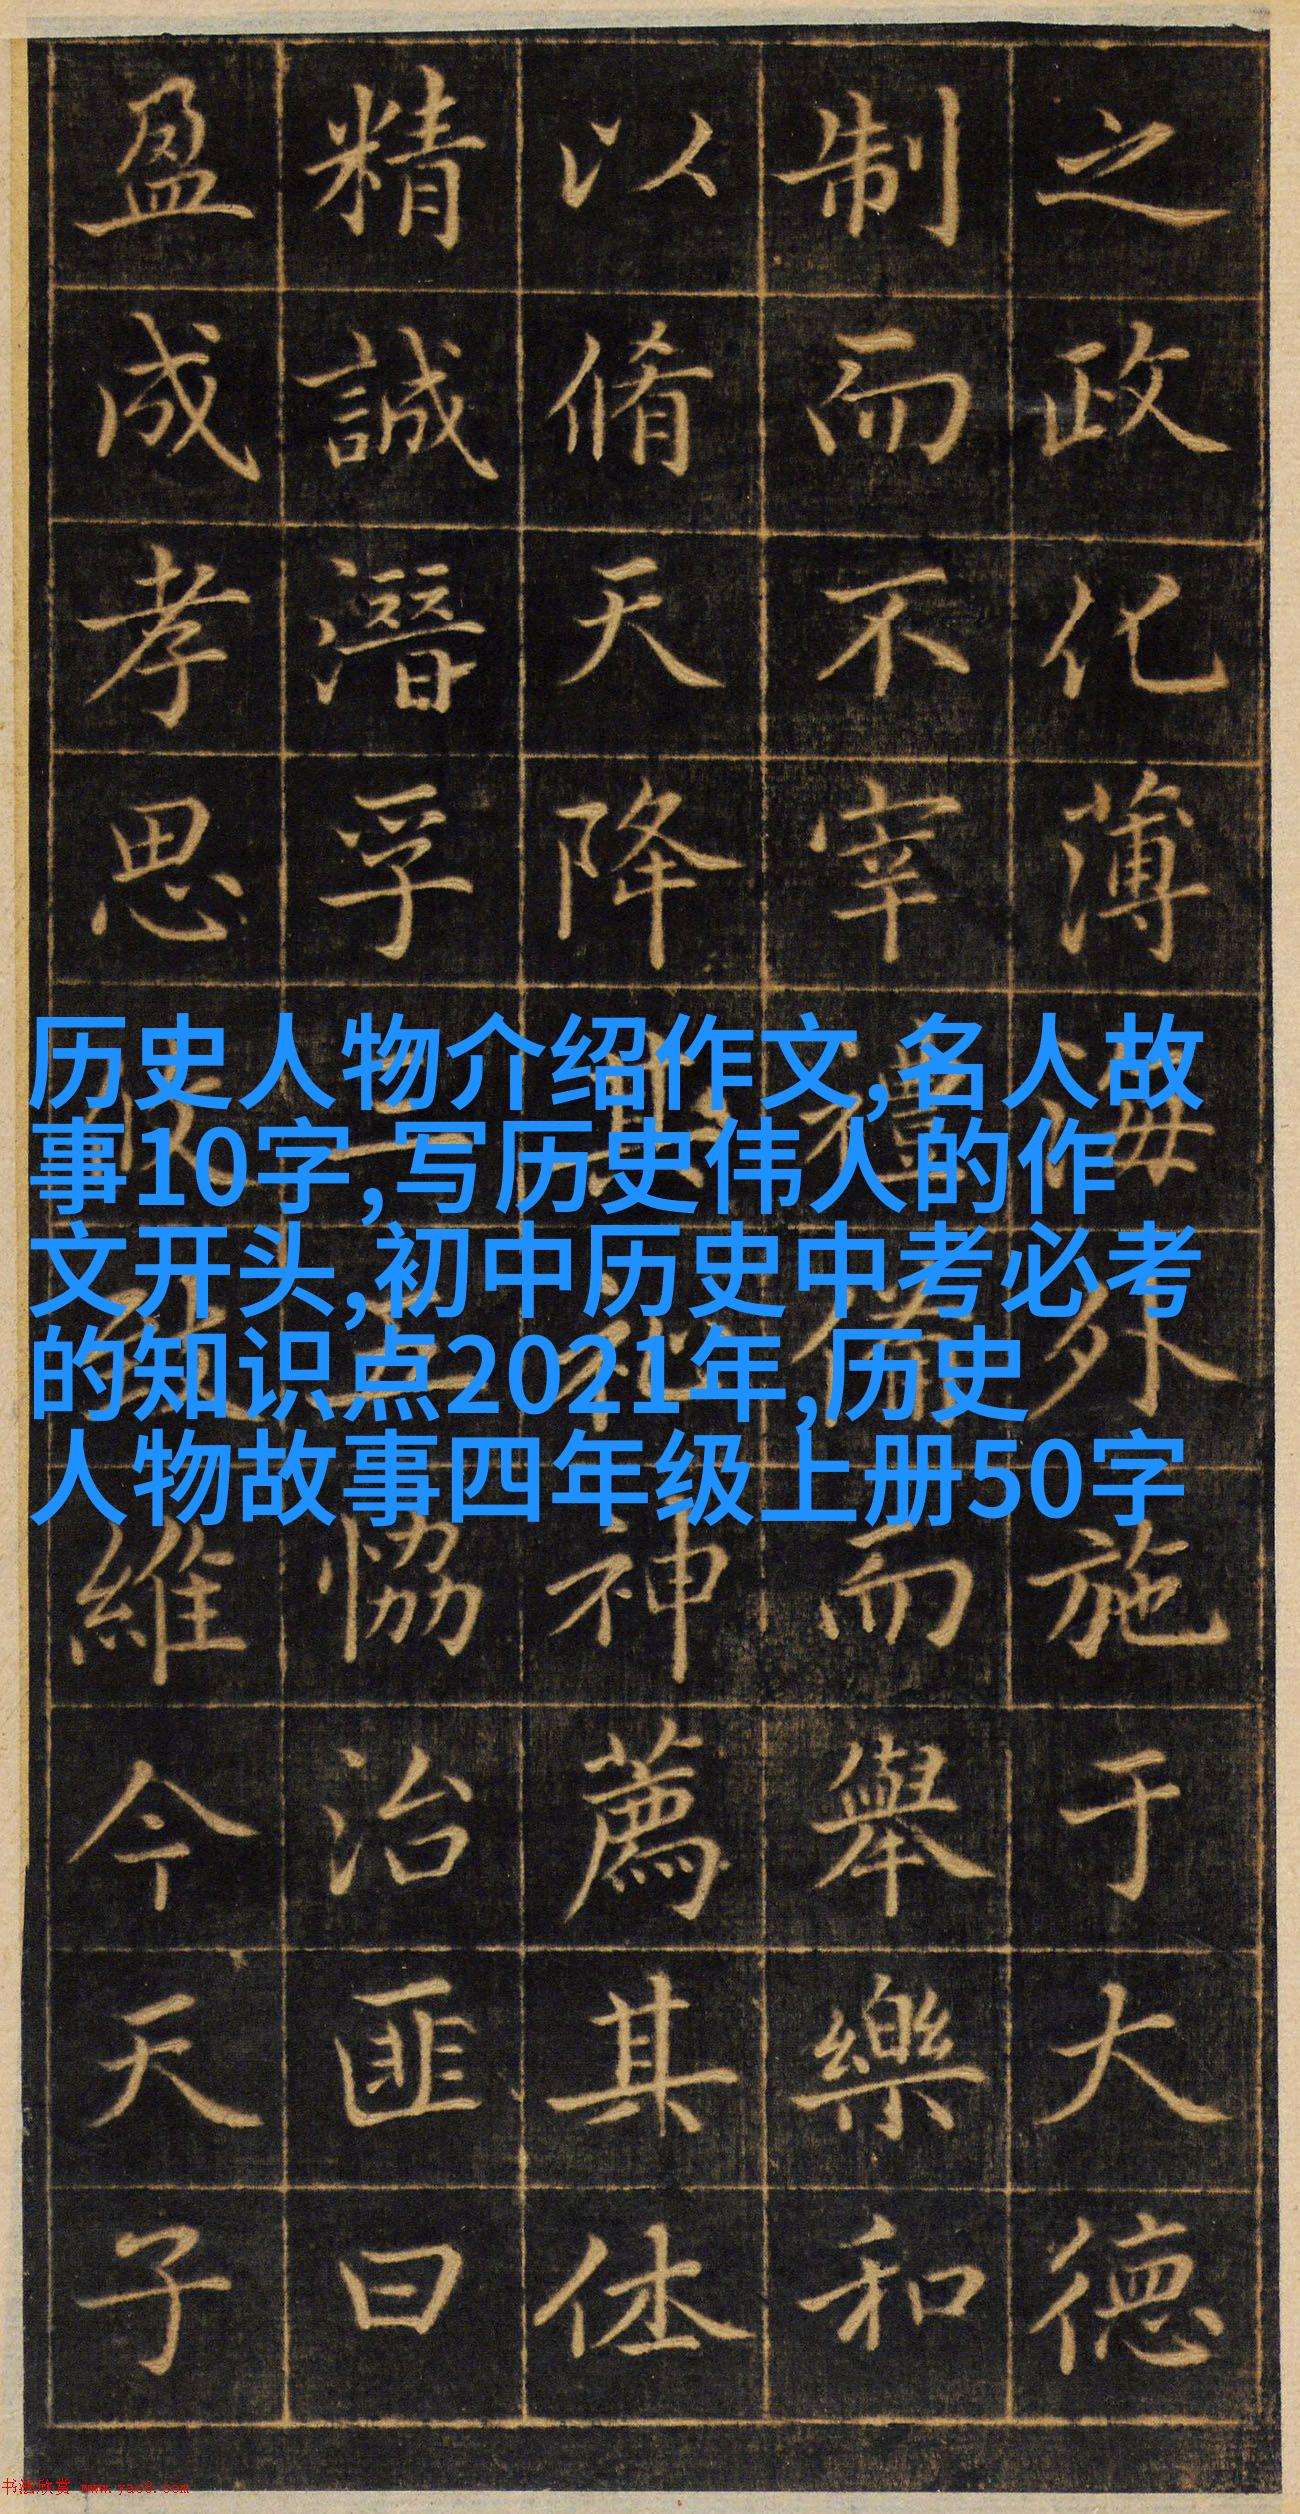 之政化薄海外施于大德
制而不宰禮備而舉樂和
以脩天降神薦其休
精誠潛孚恊治匪曰
盈成孝思維今天子
历史人物介绍作文,名人故
事10字,写历史伟人的作
文开头,初中历史中考必考
的知识点2021年,历史
人物故事四年级上册50字
书法欣赏 www.yac8.com